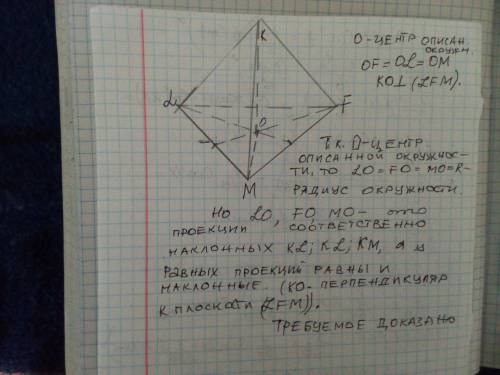 K
О-ЦЕНТР ОПИСАН.
ОКРУЖН.
OF = OL = OM
KO⊥(LFM).
L
F
O
M
Т.К. О-ЦЕНТР
ОПИСАННОЙ ОКРУЖНОС-
ТИ, ТО LO = FO = MO = R-
РАДИУС ОКРУЖНОСТИ.
НО LO, FO, MO - ЭТО
ПРОЕКЦИИ СООТВЕТСТВЕННО
НАКЛОННЫХ KL; KL; KM, А У
РАВНЫХ ПРОЕКЦИЙ РАВНЫ И
НАКЛОННЫЕ. (KO- ПЕРПЕНДИКУЛЯР
К ПЛОСКОСТИ (LFM)).
ТРЕБУЕМОЕ ДОКАЗАНО